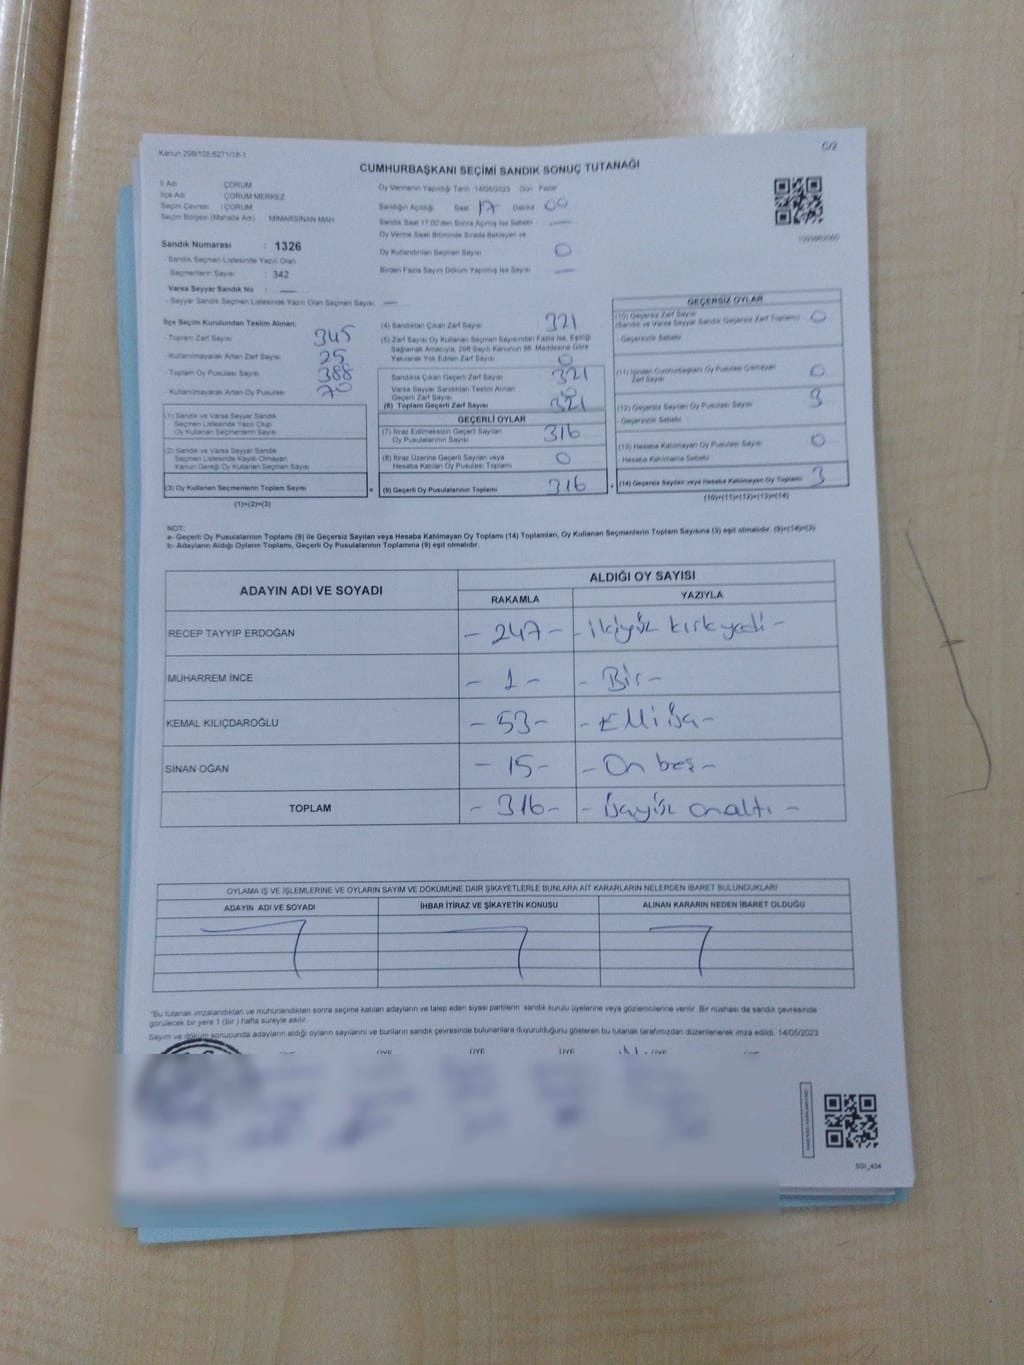 Kanun 298/105,6271/18-1
C/2
CUMHURBAŞKANI SEÇİMİ SANDIK SONUÇ TUTANAĞI
İl Adı ÇORUM
İlçe Adı ÇORUM MERKEZ
Seçim Çevresi : ÇORUM
Seçim Bölgesi (Mahalle Adı) MİMARSİNAN MAH
Sandık Numarası : 1326
- Sandık Seçmen Listesinde Yazılı Olan
Seçmenlerin Sayısı : 342
Varsa Seyyar Sandık No : —
- Seyyar Sandık Seçmen Listesinde Yazılı Olan Seçmen Sayısı : —
Oy Vermenin Yapıldığı Tarih :14/05/2023 Gün Pazar
Sandığın Açıldığı Saat 17 Dakika 00
Sandık Saat 17:00'den Sonra Açılmış İse Sebebi —
Oy Verme Saati Bitiminde Sırada Bekleyen ve
Oy Kullandırılan Seçmen Sayısı 0
Birden Fazla Sayım Döküm Yapılmış İse Sayısı —
İlçe Seçim Kurulundan Teslim Alınan;
- Toplam Zarf Sayısı 345
- Kullanılmayarak Artan Zarf Sayısı 25
- Toplam Oy Pusulası Sayısı 388
- Kullanılmayarak Artan Oy Pusulası 70
(1) Sandık ve Varsa Seyyar Sandık
Seçmen Listesinde Yazılı Olup
Oy Kullanan Seçmenlerin Sayısı
(2) Sandık ve Varsa Seyyar Sandık
Seçmen Listesinde Kayıtlı Olmayan
Kanun Gereği Oy Kullanan Seçmen Sayısı
(3) Oy Kullanan Seçmenlerin Toplam Sayısı
(1)+(2)=(3)
(4) Sandıktan Çıkan Zarf Sayısı 321
(5) Zarf Sayısı Oy Kullanan Seçmen Sayısından Fazla İse, Eşitliği
Sağlamak Amacıyla, 298 Sayılı Kanunun 98. Maddesine Göre
Yakılarak Yok Edilen Zarf Sayısı 0
Sandıkta Çıkan Geçerli Zarf Sayısı 321
Varsa Seyyar Sandıktan Teslim Alınan
Geçerli Zarf Sayısı 0
(6) Toplam Geçerli Zarf Sayısı 321
GEÇERLİ OYLAR
(7) İtiraz Edilmeksizin Geçerli Sayılan
Oy Pusulalarının Sayısı 316
(8) İtiraz Üzerine Geçerli Sayılan veya
Hesaba Katılan Oy Pusulası Toplamı 0
= (9) Geçerli Oy Pusulalarının Toplamı 316
GEÇERSİZ OYLAR
(10) Geçersiz Zarf Sayısı
(Sandık ve Varsa Seyyar Sandık Geçersiz Zarf Toplamı) 0
- Geçersizlik Sebebi
(11) İçinden Cumhurbaşkanı Oy Pusulası Çıkmayan
Zarf Sayısı 0
(12) Geçersiz Sayılan Oy Pusulası Sayısı 3
- Geçersizlik Sebebi
(13) Hesaba Katılmayan Oy Pusulası Sayısı 0
- Hesaba Katılmama Sebebi
+ (14) Geçersiz Sayılan veya Hesaba Katılmayan Oy Toplamı 3
(10)+(11)+(12)+(13)=(14)
NOT:
a- Geçerli Oy Pusulalarının Toplamı (9) ile Geçersiz Sayılan veya Hesaba Katılmayan Oy Toplamı (14) Toplamları, Oy Kullanan Seçmenlerin Toplam Sayısına (3) eşit olmalıdır. (9)+(14)=(3)
b- Adayların Aldığı Oyların Toplamı, Geçerli Oy Pusulalarının Toplamına (9) eşit olmalıdır.
ADAYIN ADI VE SOYADI
ALDIĞI OY SAYISI
RAKAMLA YAZIYLA
RECEP TAYYİP ERDOĞAN - 247 - - ikiyüz kırkyedi -
MUHARREM İNCE - 1 - - Bir -
KEMAL KILIÇDAROĞLU - 53 - - Elli üç -
SİNAN OĞAN - 15 - - On beş -
TOPLAM - 316 - - üçyüz onaltı -
OYLAMA İŞ VE İŞLEMLERİNE VE OYLARIN SAYIM VE DÖKÜMÜNE DAİR ŞİKAYETLERLE BUNLARA AİT KARARLARIN NELERDEN İBARET BULUNDUKLARI
ADAYIN ADI VE SOYADI İHBAR İTİRAZ VE ŞİKAYETİN KONUSU ALINAN KARARIN NEDEN İBARET OLDUĞU
"Bu tutanak imzalandıktan ve mühürlendikten sonra seçime katılan adayların ve talep eden siyasi partilerin sandık kurulu üyelerine veya gözlemcilerine verilir. Bir nüshası da sandık çevresinde
görülecek bir yere 1 (bir ) hafta süreyle asılır.
Sayım ve döküm sonucunda adayların aldığı oyların sayılarını ve bunların sandık çevresinde bulunanlara duyurulduğunu gösteren bu tutanak tarafımızdan düzenlenerek imza edildi. 14/05/2023
ÜYE ÜYE ÜYE ÜYE ÜYE
SSI_404